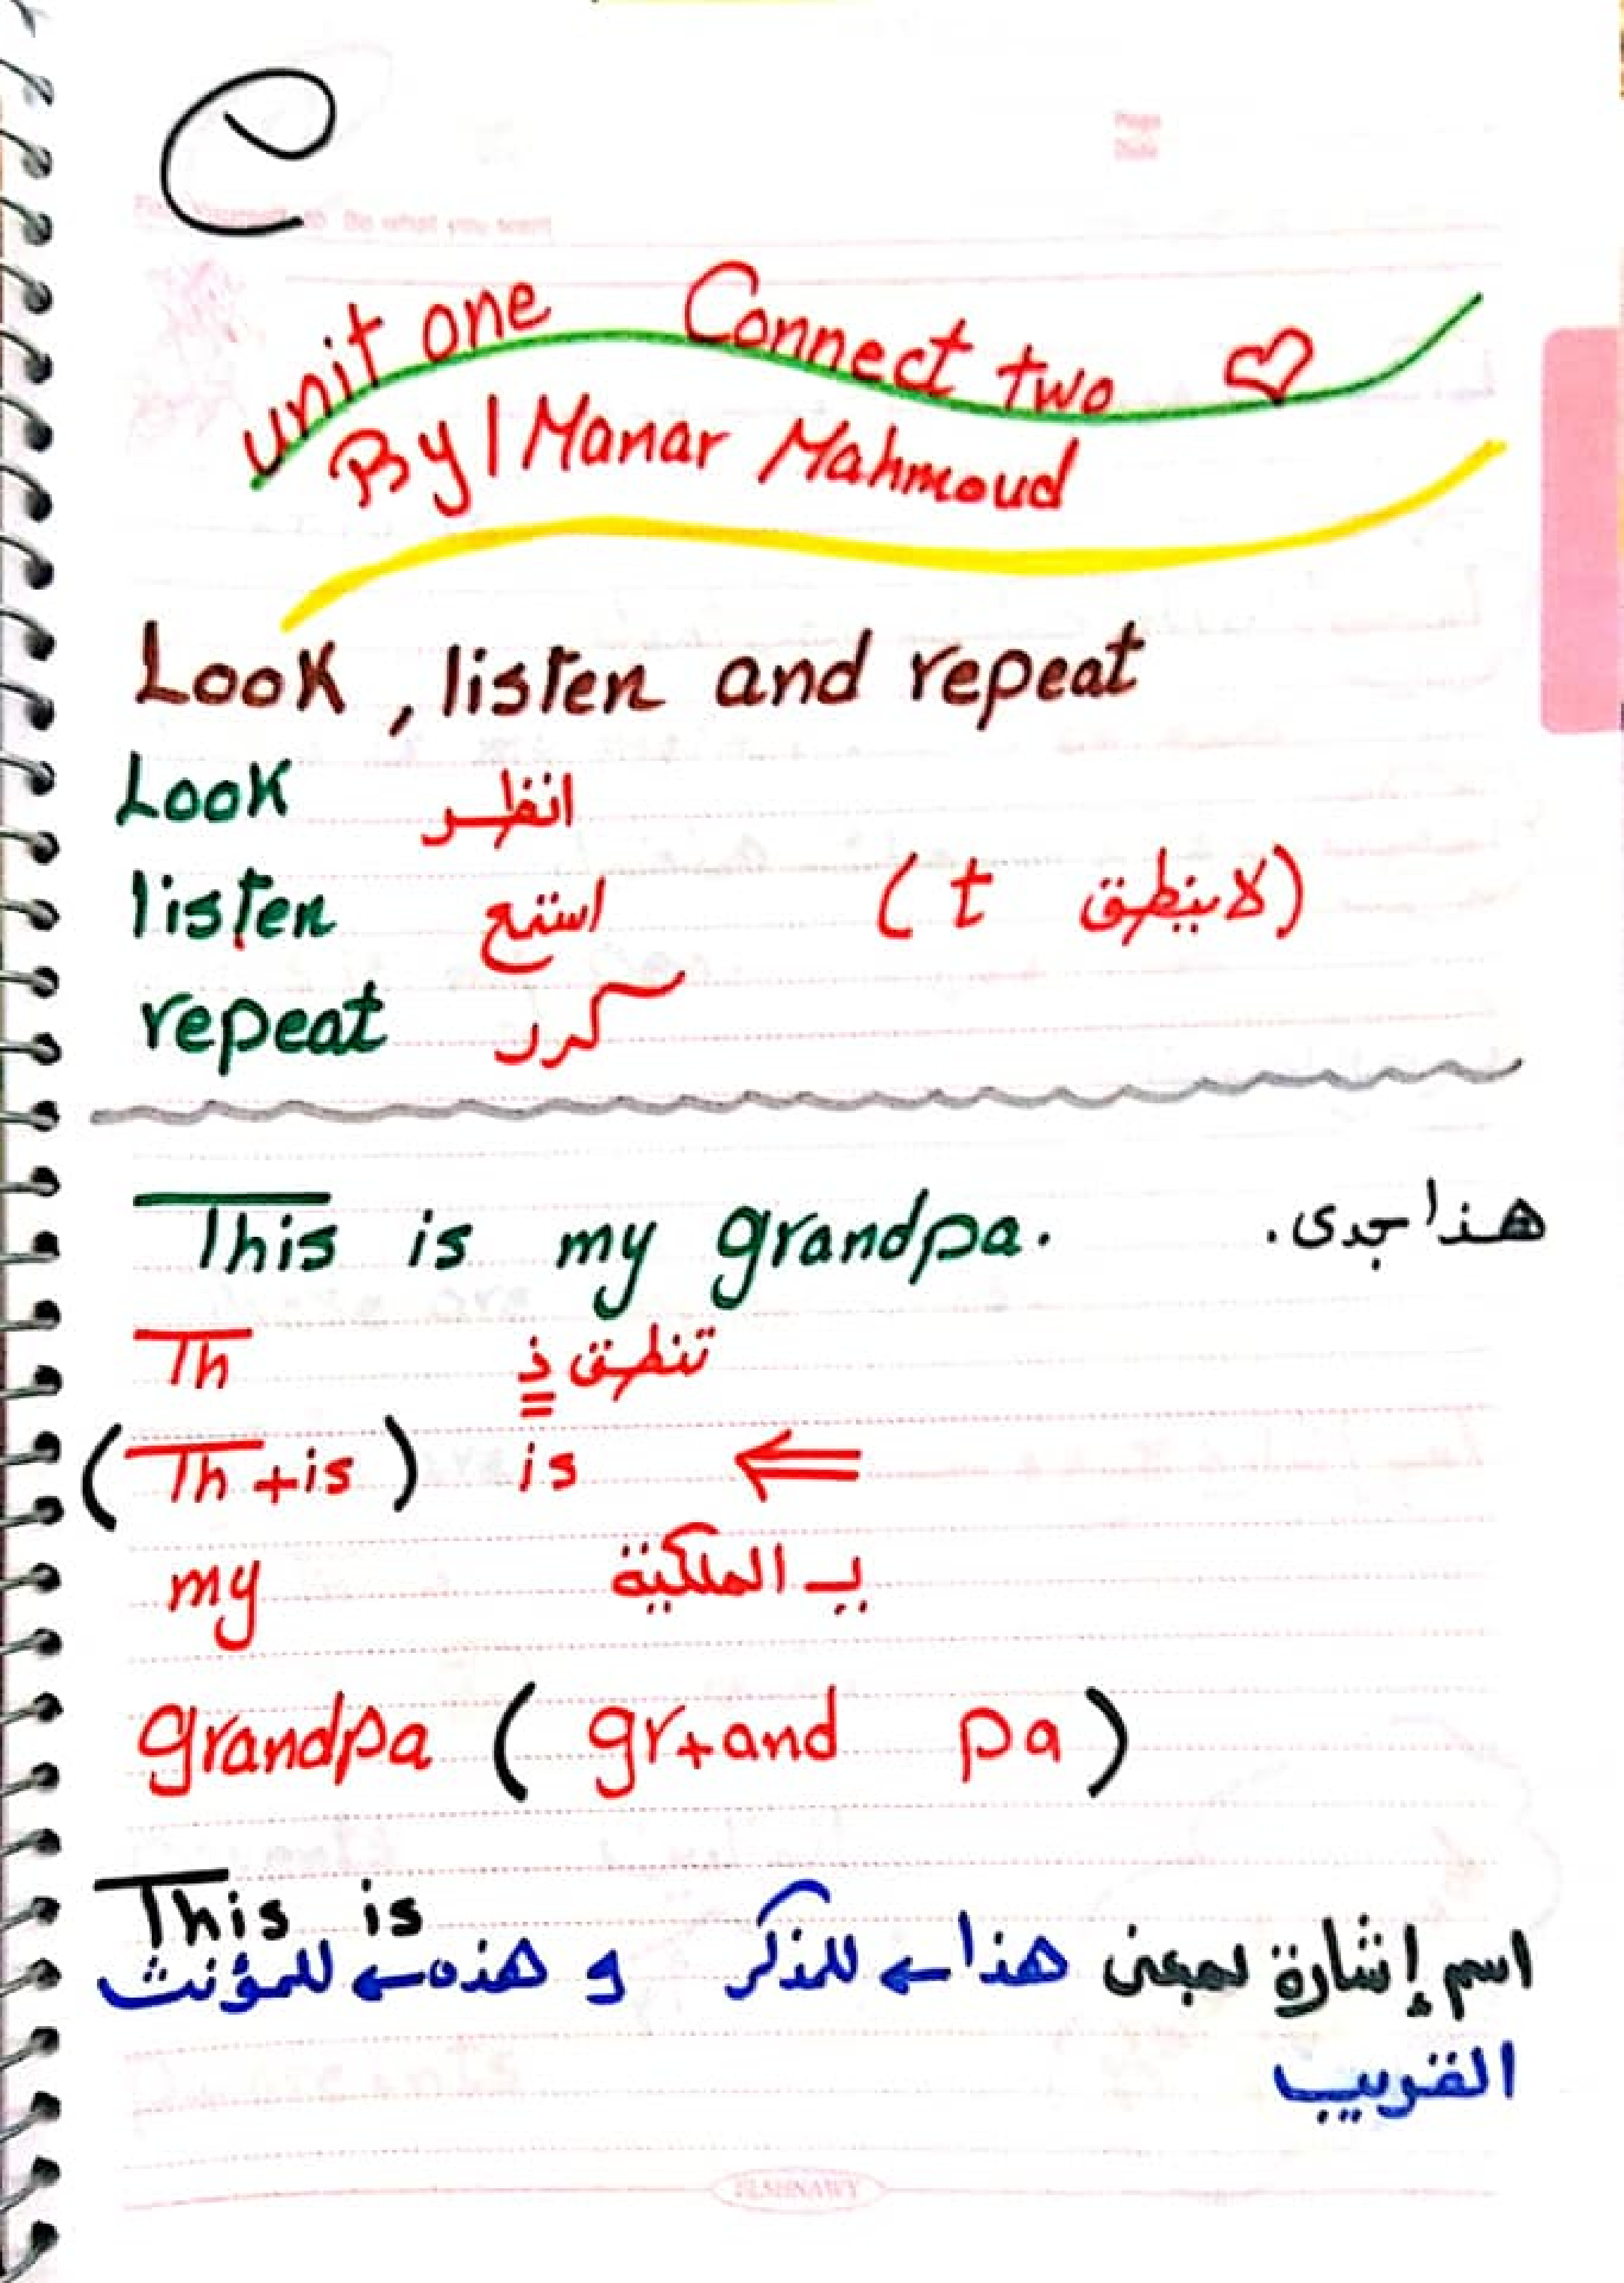 Page
Date
unit one Connect two
By / Manar Mahmoud
Look , listen and repeat
Look انظر
listen استمع (لا ينطق t)
repeat كرر
This is my grandpa. هذا جدى.
Th تنطق ذ
(Th+is) is ⇐
my يـ الملكية
grandpa ( gr+and pa )
This is
اسم إشارة بمعنى هذا ← للمذكر و هذه ← للمؤنث
القريب